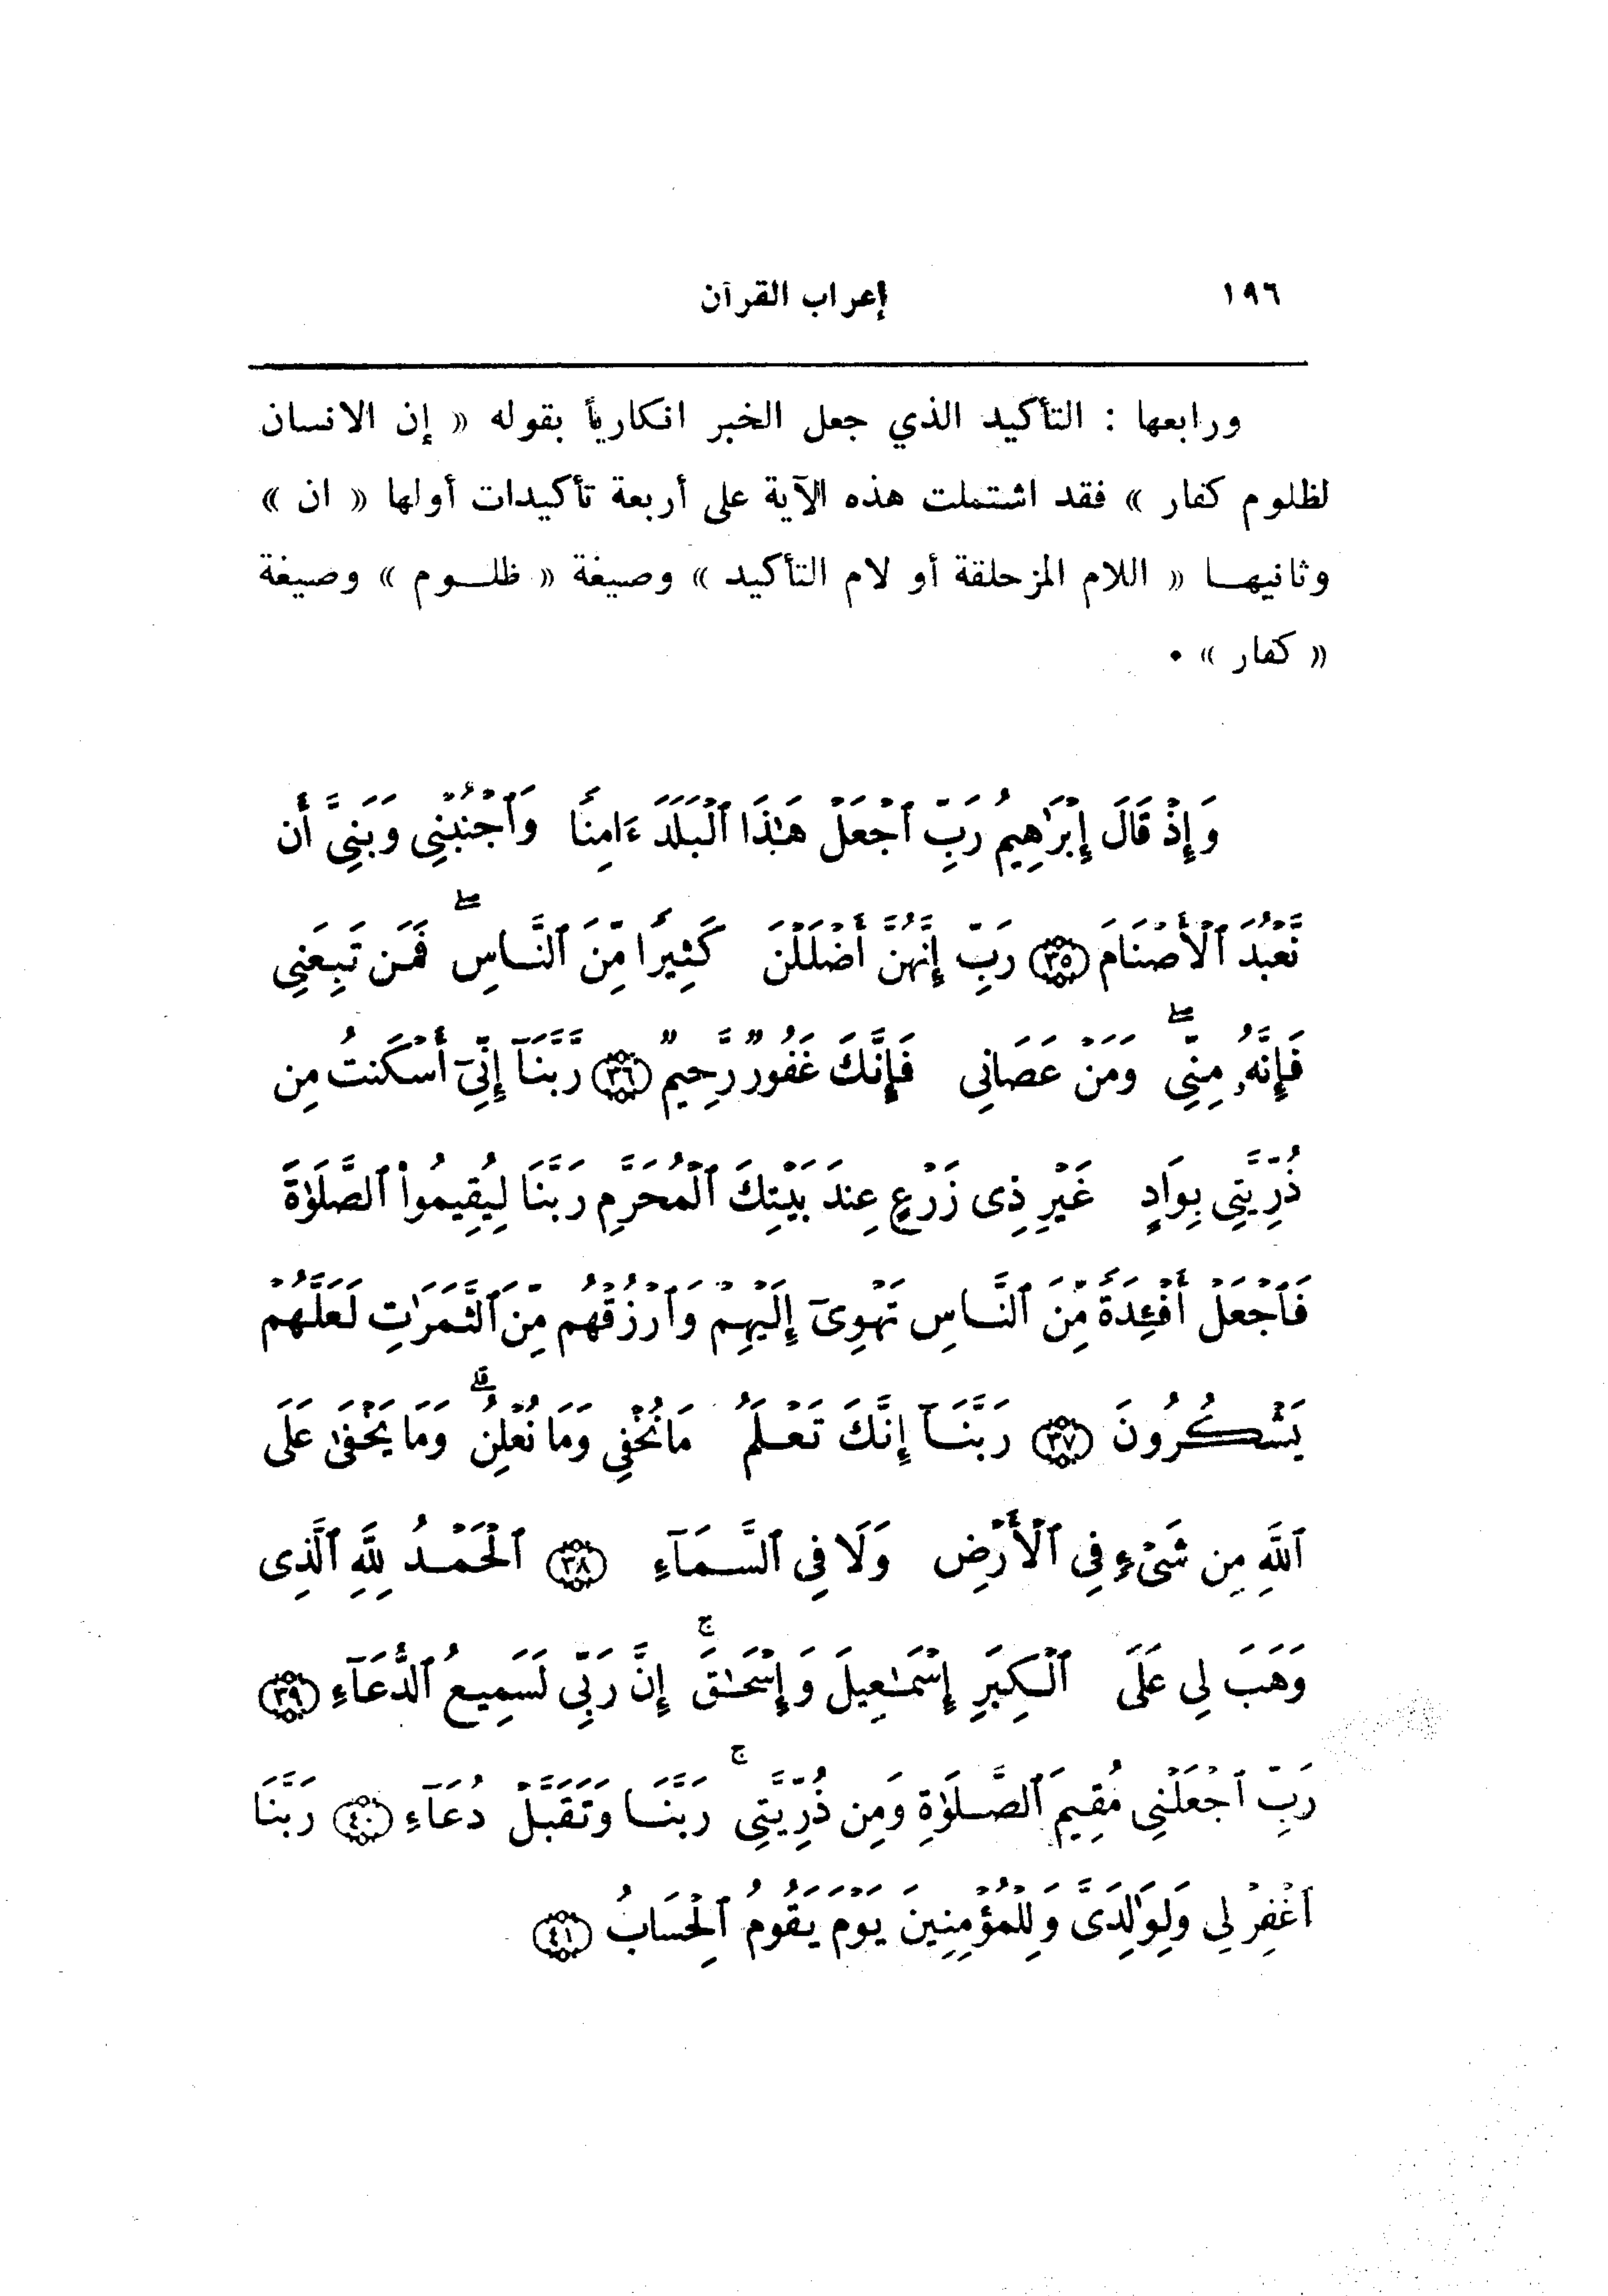 ١٩٦ إعراب القرآن
ورابعها : التأكيد الذي جعل الخبر انكارياً بقوله « إن الانسان
لظلوم كفار » فقد اشتملت هذه الآية على أربعة تأكيدات أولها « ان »
وثانيهـا « اللام المزحلقة أو لام التأكيد » وصيغة « ظلـوم » وصيغة
« كفار » ٠
وَإِذْ قَالَ إِبْرَٰهِيمُ رَبِّ ٱجْعَلْ هَـٰذَا ٱلْبَلَدَ ءَامِنًا وَٱجْنُبْنِى وَبَنِىَّ أَن
نَّعْبُدَ ٱلْأَصْنَامَ ﴿٣٥﴾ رَبِّ إِنَّهُنَّ أَضْلَلْنَ كَثِيرًا مِّنَ ٱلنَّـاسِ ۖ فَمَن تَبِعَنِى
فَإِنَّهُۥ مِنِّى ۖ وَمَنْ عَصَانِى فَإِنَّكَ غَفُورٌ رَّحِيمٌ ﴿٣٦﴾ رَّبَّنَآ إِنِّىٓ أَسْكَنتُ مِن
ذُرِّيَّتِى بِوَادٍ غَيْرِ ذِى زَرْعٍ عِندَ بَيْتِكَ ٱلْمُحَرَّمِ رَبَّنَا لِيُقِيمُوا۟ ٱلصَّلَوٰةَ
فَٱجْعَلْ أَفْـِٔدَةً مِّنَ ٱلنَّـاسِ تَهْوِىٓ إِلَيْهِمْ وَٱرْزُقْهُم مِّنَ ٱلثَّمَرَٰتِ لَعَلَّهُمْ
يَشْكُرُونَ ﴿٣٧﴾ رَبَّنَـآ إِنَّكَ تَعْـلَمُ مَا نُخْفِى وَمَا نُعْلِنُ ۗ وَمَا يَخْفَىٰ عَلَى
ٱللَّهِ مِن شَىْءٍ فِى ٱلْأَرْضِ وَلَا فِى ٱلسَّـمَآءِ ﴿٣٨﴾ ٱلْحَمْـدُ لِلَّهِ ٱلَّذِى
وَهَبَ لِى عَلَى ٱلْـكِبَرِ إِسْمَـٰعِيلَ وَإِسْحَـٰقَ ۚ إِنَّ رَبِّى لَسَمِيعُ ٱلدُّعَآءِ ﴿٣٩﴾
رَبِّ ٱجْعَلْنِى مُقِيمَ ٱلصَّـلَوٰةِ وَمِن ذُرِّيَّتِى ۚ رَبَّنَـا وَتَقَبَّلْ دُعَآءِ ﴿٤٠﴾ رَبَّنَا
ٱغْفِرْ لِى وَلِوَٰلِدَىَّ وَلِلْمُؤْمِنِينَ يَوْمَ يَقُومُ ٱلْحِسَابُ ﴿٤١﴾